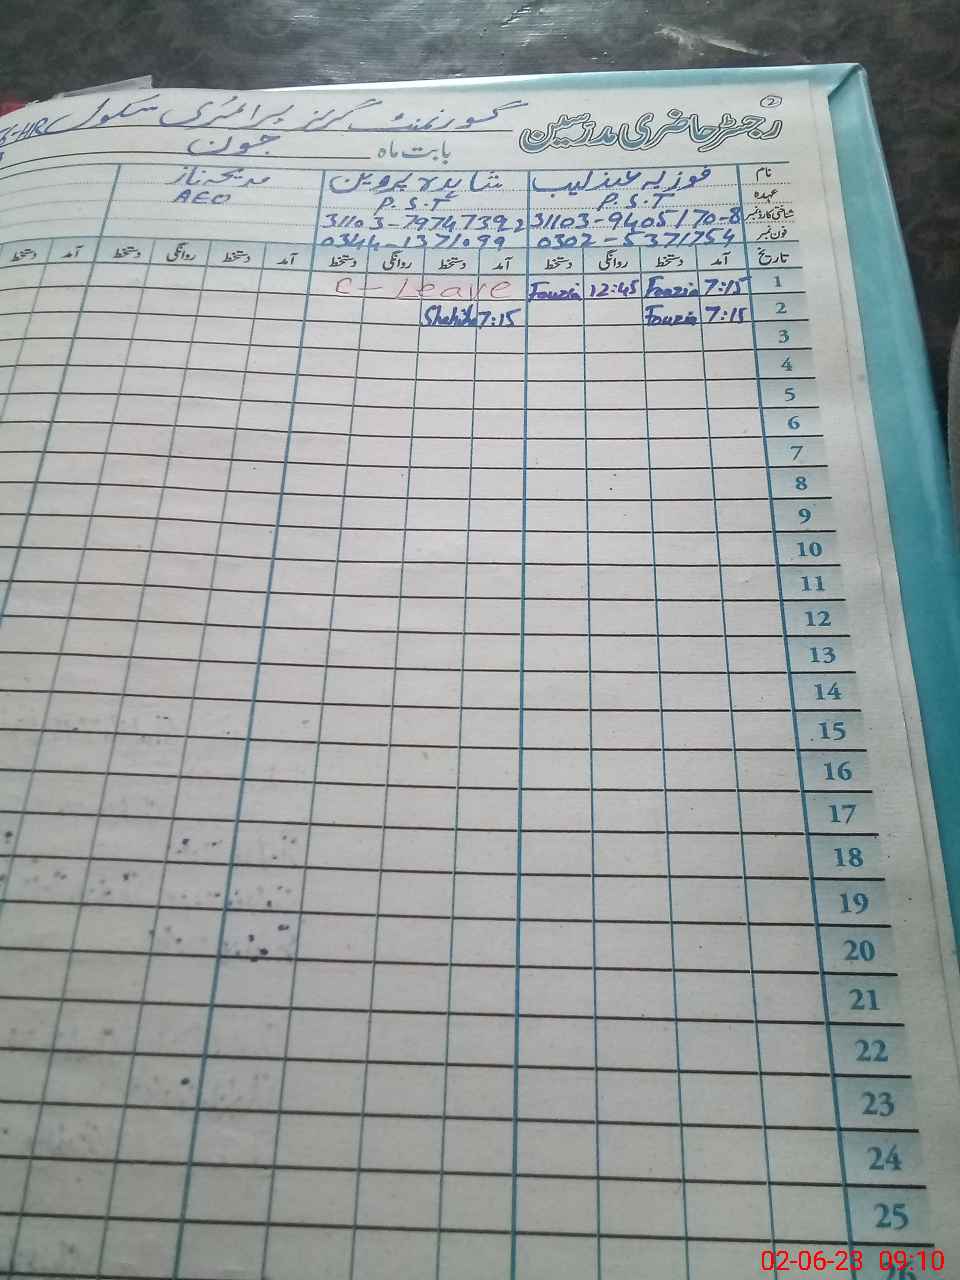 2
رجسٹر حاضری مدرسین گورنمنٹ گرلز پرائمری سکول
بابت ماہ جون
نام فوزیہ عندلیب شاہدہ پروین مدیحہ ناز
عہدہ P.S.T P.S.T AEO
شناختی کارڈ نمبر 31103-9405170-8 31103-7974739 2
فون نمبر 0302-5371754 0344-1371099
تاریخ آمد دستخط روانگی دستخط آمد دستخط روانگی دستخط آمد دستخط روانگی دستخط آمد دستخط
1 7:15 Fouzia 12:45 Fouzia C-Leave
2 7:15 Fouzia 7:15 Shahida
3
4
5
6
7
8
9
10
11
12
13
14
15
16
17
18
19
20
21
22
23
24
25
02-06-23 09:10